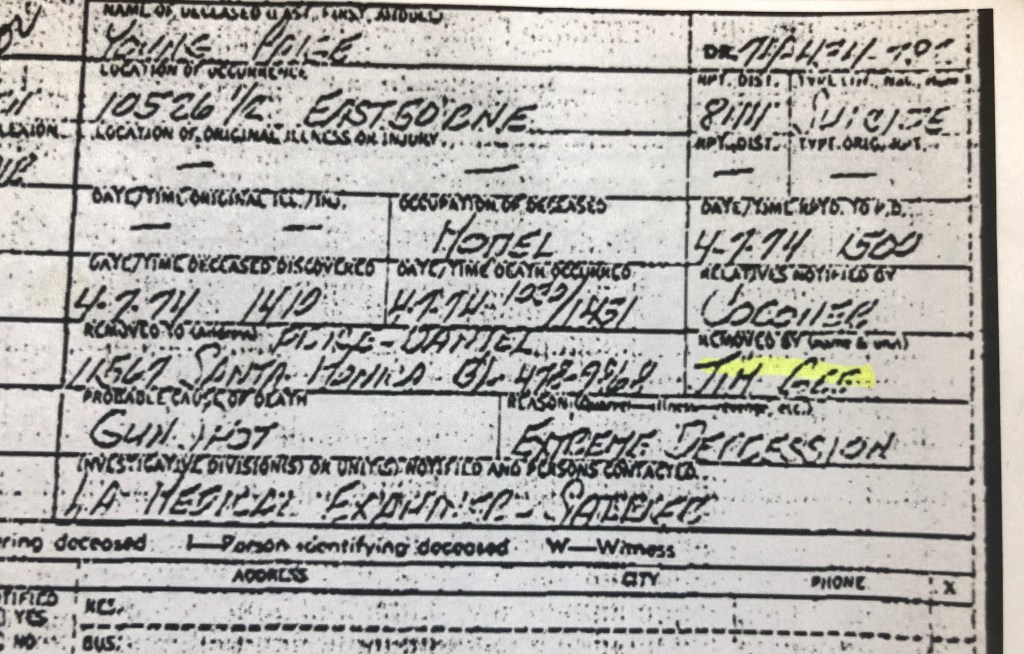 NAME OF DECEASED (LAST, FIRST, MIDDLE)
YOUNG
DR 74
LOCATION OF OCCURRENCE
RPT. DIST.
10526 1/2 EASTBORNE
8111 SUICIDE
LEXION
LOCATION OF ORIGINAL ILLNESS OR INJURY
RPT. DIST. TYPE ORIG. RPT.
— — — —
DATE/TIME ORIGINAL ILL./INJ. OCCUPATION OF DECEASED DATE/TIME RPTD. TO P.D.
— — MODEL 4-7-74 1500
DATE/TIME DECEASED DISCOVERED DATE/TIME DEATH OCCURRED RELATIVES NOTIFIED BY
4-7-74 4-7-74 /1451 CORONER
REMOVED TO (address) REMOVED BY (name & unit)
PRICE-DANIEL
11567 SANTA MONICA BL 478-9868 TIM
PROBABLE CAUSE OF DEATH REASON (Quarrel—illness—revenge, etc.)
GUNSHOT EXTREME DEPRESSION
INVESTIGATIVE DIVISION(S) OR UNIT(S) NOTIFIED AND PERSONS CONTACTED
LA MEDICAL EXAMINER -
ering deceased I—Person identifying deceased W—Witness
ADDRESS CITY PHONE X
TIFIED RES.
YES
NO BUS.